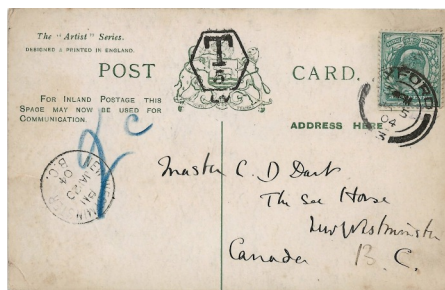 The "Artist" Series.
DESIGNED & PRINTED IN ENGLAND.
POST CARD.
T
5
FOR INLAND POSTAGE THIS
SPACE MAY NOW BE USED FOR
COMMUNICATION.
ADDRESS HERE
2c
04
B.C.
Master C. D Dart
The See House
New Westminster
Canada B. C.